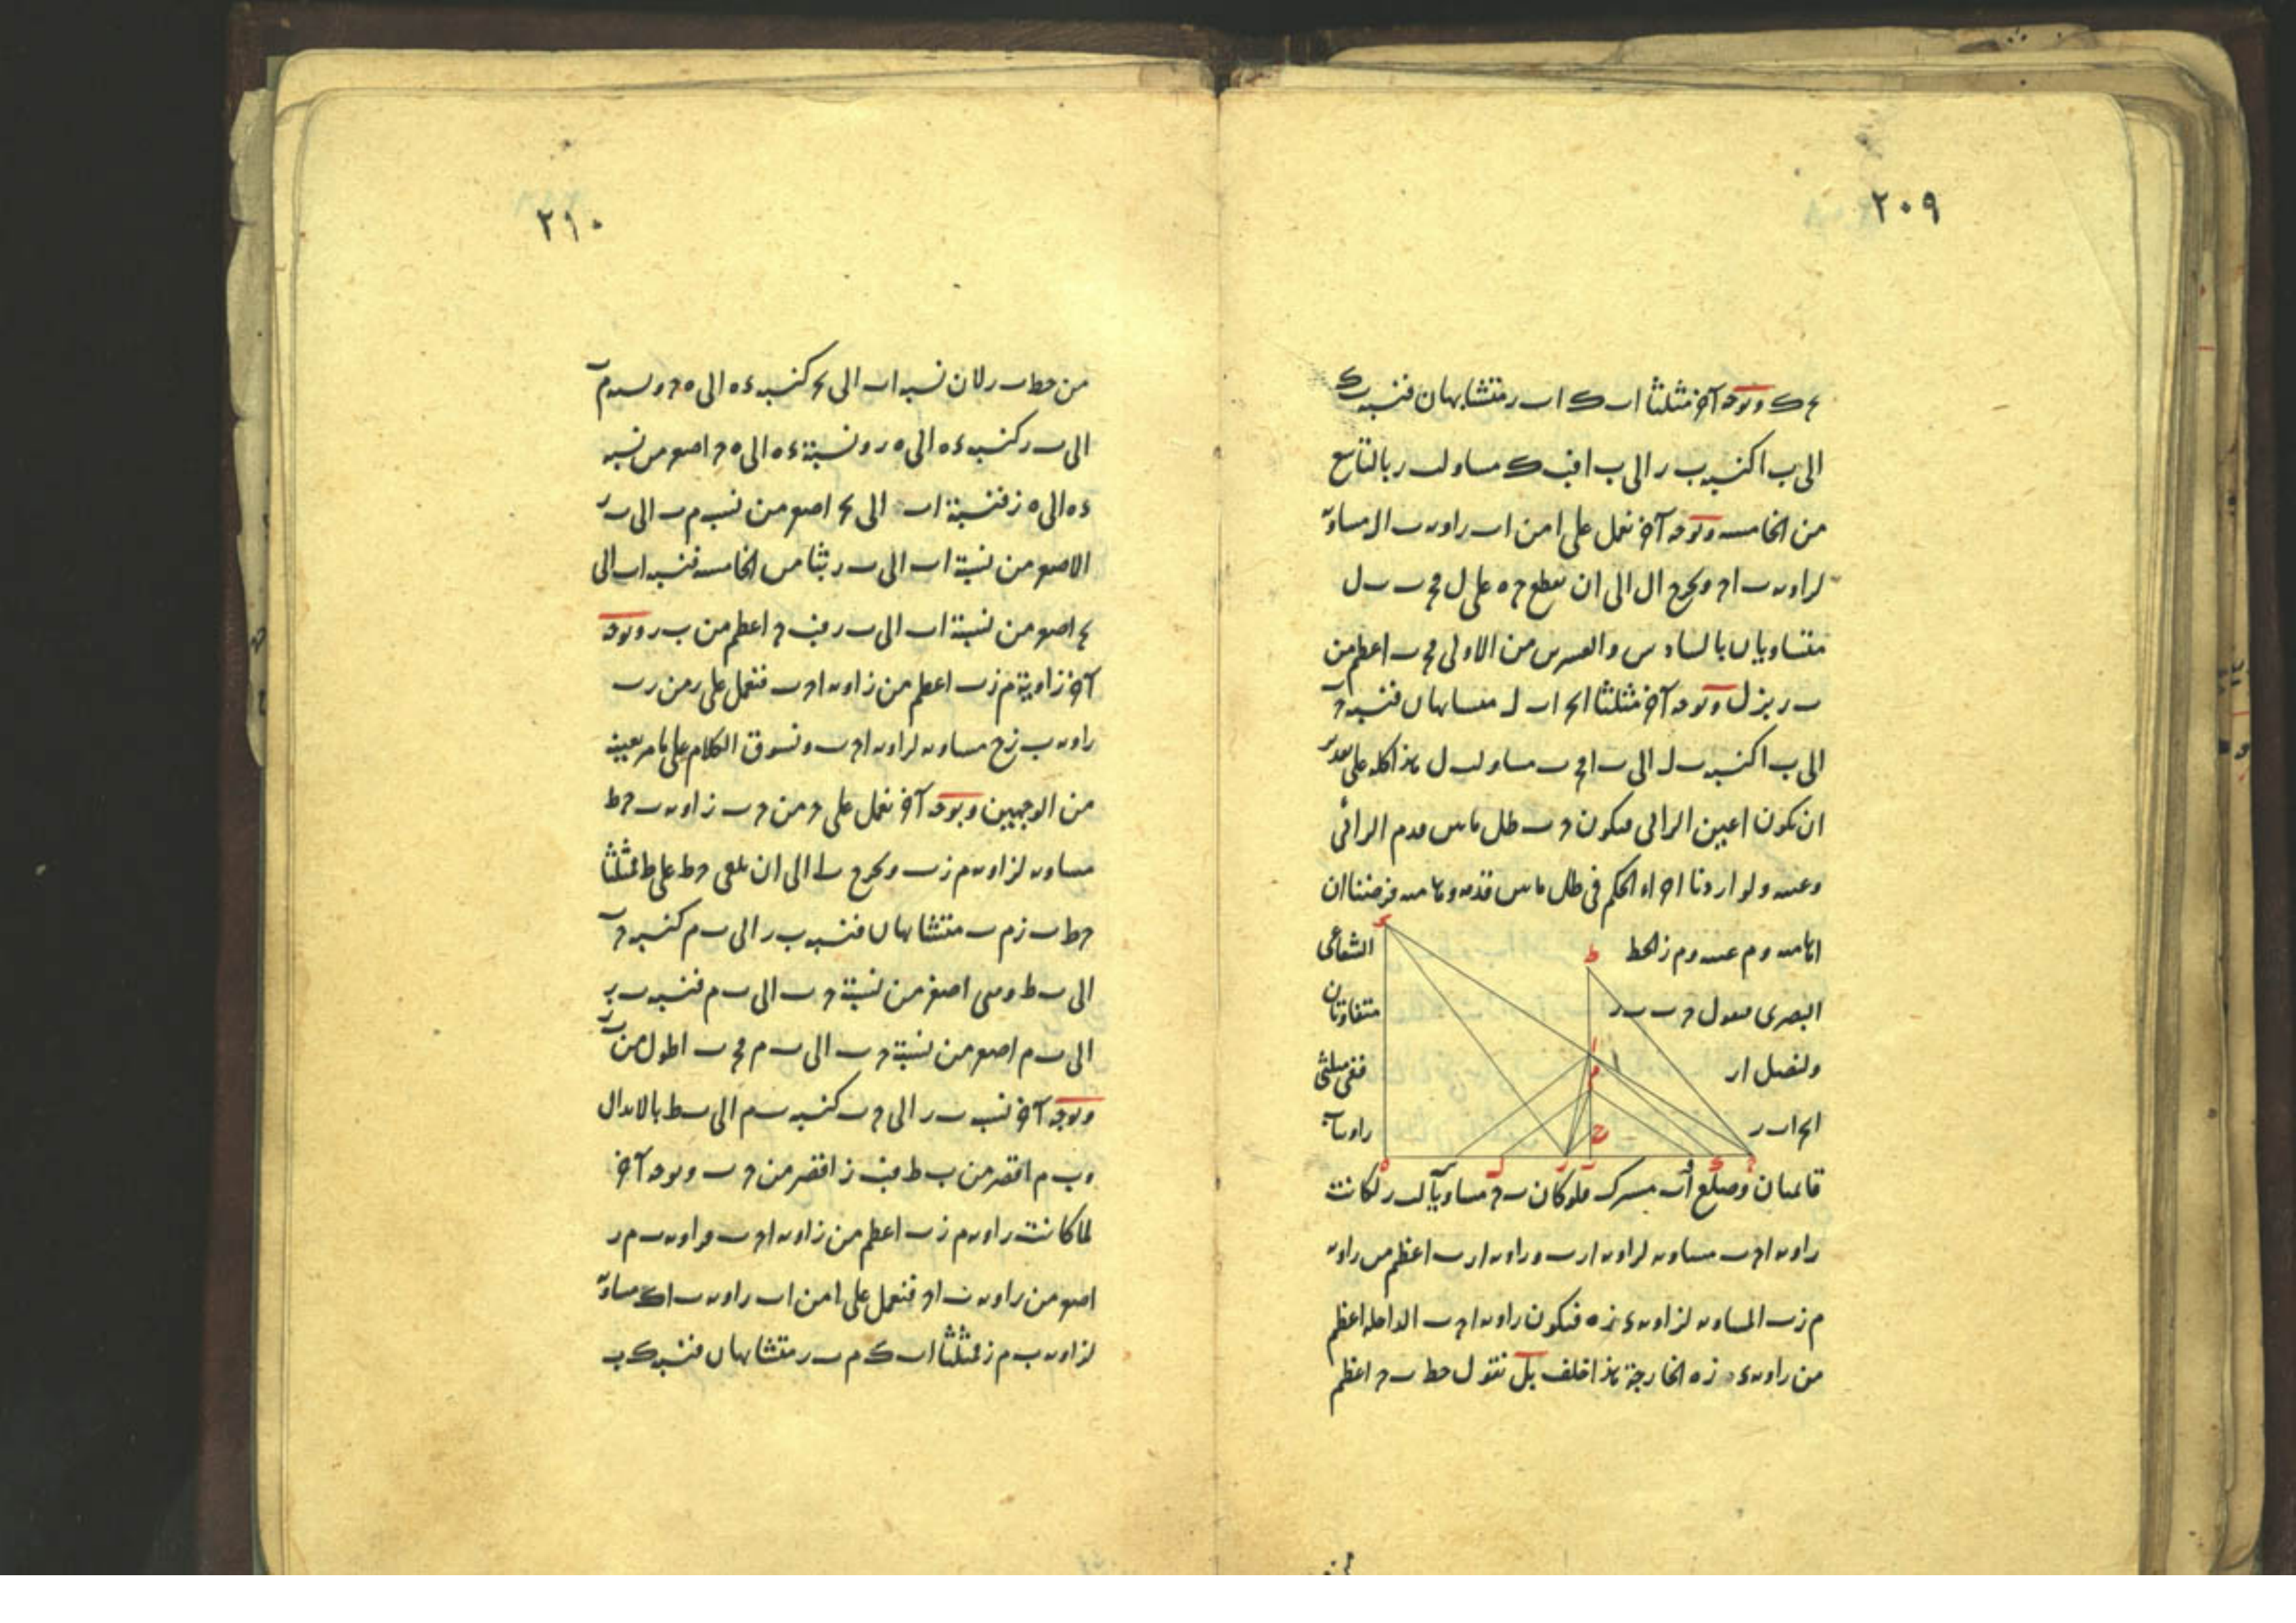 ٢٠٩
ح ك وبوجه آخر مثلثا اب ك اب ر متشابهان فنسبة ب ك
الى ب ا كنسبة ب ر الى ب ا فب ك مساو لب ر بالتاسع
من الخامسة وبوجه آخر نعمل على ا من اب زاوية ب ال مساوية
لزاوية ب اح ونخرج ال الى ان يقطع ح ه على ل فح ب ب ل
متساويان بالسادس والعشرين من الاولى فح ب اعظم من
ب ر بزل وبوجه آخر مثلثا اب ل متشابهان فنسبة ح ب
الى ب ا كنسبة ب ل الى ب ا فح ب مساو لب ل هذا كله على تقدير
ان يكون اعين الرائى فيكون ح ب ظل ما بين قدم الرائى
وعينه ولو اردنا اجراء الحكم فى ظل ما بين قدمه وهامته فرضنا ان
ا هامته و م عينه و م ز الخط
الشعاعى
البصرى فنقول ح ب ب ر
متفاوتان
ولنصل ار
ففى مثلثى
اح ب اب ر
زاويتا ب
قائمتان وضلع اب مشترك فلو كان ب ح مساويا لب ر لكانت
زاوية اح ب مساوية لزاوية ار ب وزاوية ار ب اعظم من زاوية
م ز ب المساوية لزاوية ء ز ه فيكون زاوية اح ب الداخلة اعظم
من زاوية ء ز ه الخارجة هذا خلف بل نقول خط ب ح اعظم
٢١٠
من خط ب ر لان نسبة اب الى ب ح كنسبة ء ه الى ه ح ونسبة م ب
الى ب ر كنسبة ء ه الى ه ر ونسبة ء ه الى ه ح اصغر من نسبة
ء ه الى ه ز فنسبة اب الى ب ح اصغر من نسبة م ب الى ب ر
الاصغر من نسبة اب الى ب ر بثامن الخامسة فنسبة اب الى
ب ح اصغر من نسبة اب الى ب ر فب ح اعظم من ب ر وبوجه
آخر زاوية م ز ب اعظم من زاوية اح ب فنعمل على ر من ر ب
زاوية ب ز ح مساوية لزاوية اح ب ونسوق الكلام على ما مر بعينه
من الوجهين وبوجه آخر نعمل على ح من ح ب زاوية ب ح ط
مساوية لزاوية م ز ب ونخرج ب ا الى ان يلقى ح ط على ط فمثلثا
ح ط ب ز م ب متشابهان فنسبة ب ر الى ب م كنسبة ح ب
الى ب ط وهى اصغر من نسبة ح ب الى ب م فنسبة ب ر
الى ب م اصغر من نسبة ح ب الى ب م فح ب اطول من ب ز
وبوجه آخر نسبة ب ر الى ح ب كنسبة ب م الى ب ط بالابدال
و ب م اقصر من ب ط فب ز اقصر من ح ب وبوجه آخر
لما كانت زاوية م ز ب اعظم من زاوية اح ب فزاوية ب م ر
اصغر من زاوية ب اح فنعمل على ا من اب زاوية ب اك مساوية
لزاوية ب م ز فمثلثا اب ك م ب ر متشابهان فنسبة ك ب